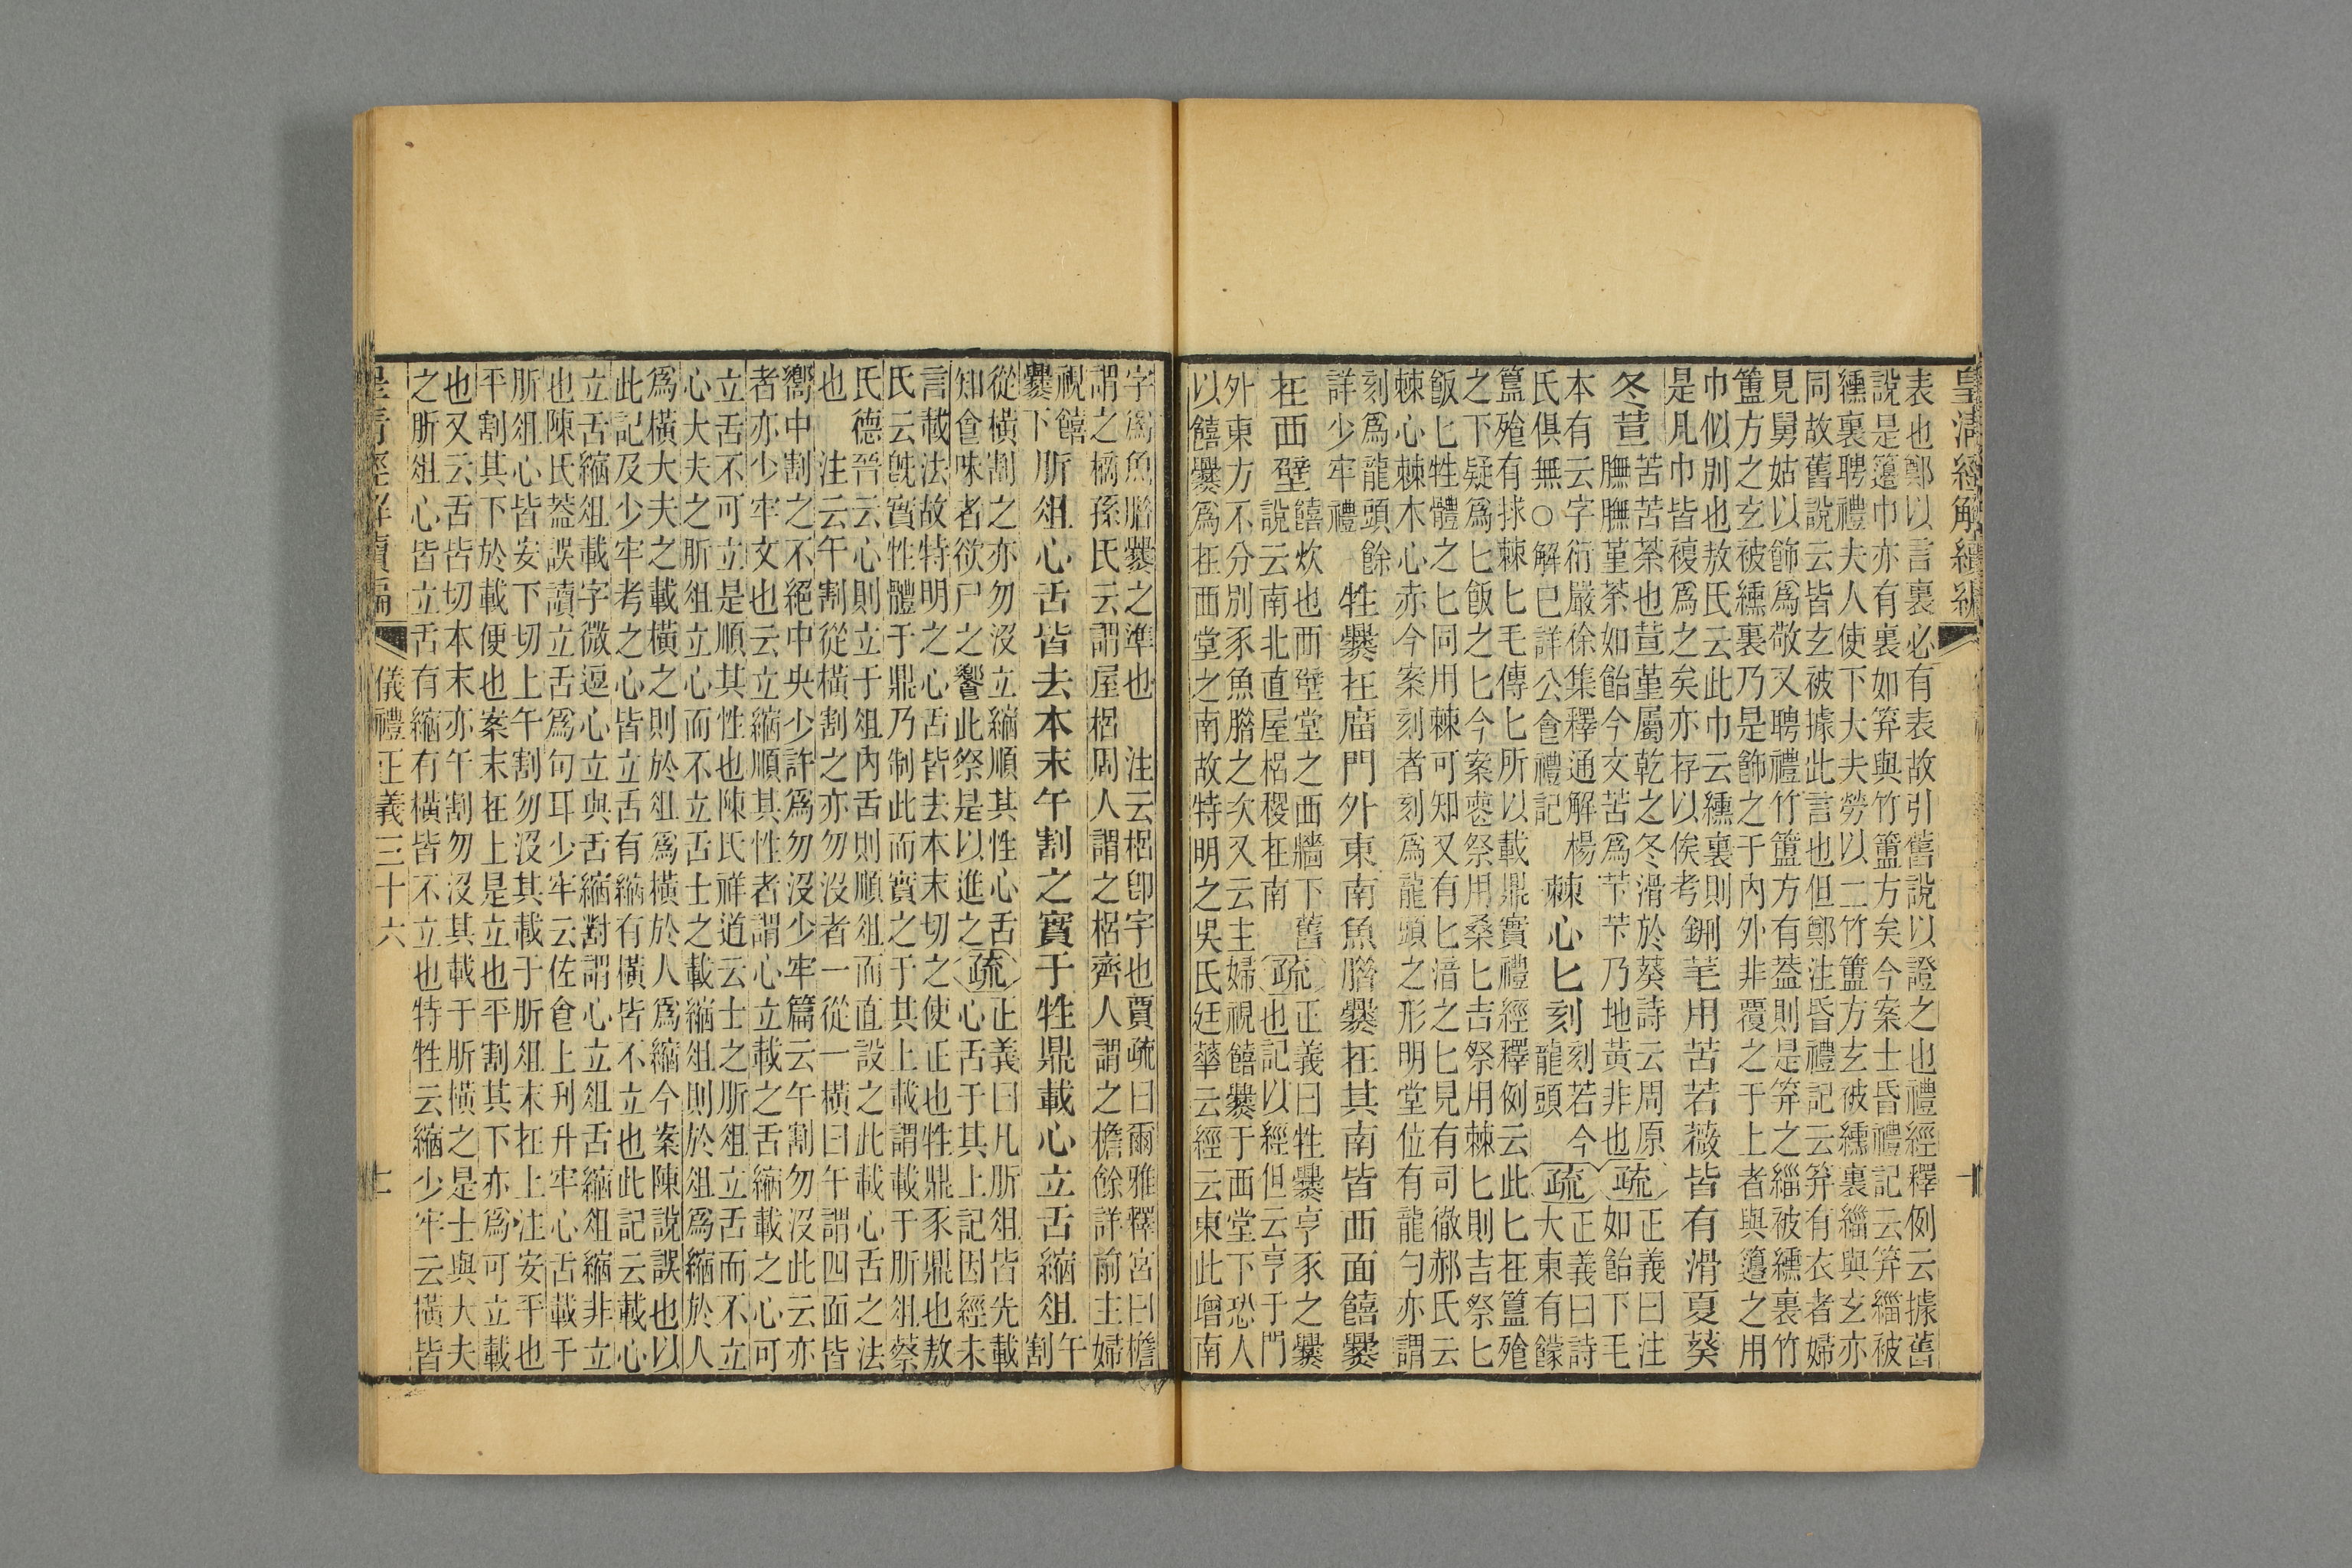 皇清經解續編
表也鄭以言裏必有表故引舊說以證之也禮經釋例云據舊
說是籩巾亦有裏如笲與竹簠方矣今案士昏禮記云笲緇被
纁裏聘禮夫人使下大夫勞以二竹簠方玄被纁裏緇與玄亦
同故舊說云皆玄被據此言也但鄭注昏禮記云笲有衣者婦
見舅姑以飾為敬又聘禮竹簠方有葢則是笲之緇被纁裏竹
簠方之玄被纁裏乃是飾之于內外非覆之于上者與籩之用
巾似別也敖氏云此巾云纁裏則
是凡巾皆複為之矣亦存以俟考鉶芼用苦若薇皆有滑夏葵
冬荁苦苦荼也荁堇屬乾之冬滑於葵詩云周原
膴膴堇荼如飴今文苦為芐芐乃地黃非也疏正義曰注
如飴下毛
本有云字衍嚴徐集釋通解楊
氏俱無○解已詳公食禮記棘心匕刻刻若今
龍頭疏正義曰詩
大東有饛
簋飱有捄棘匕毛傳匕所以載鼎實禮經釋例云此匕在簋飱
之下疑為匕飯之匕今案喪祭用桑匕吉祭用棘匕則吉祭匕
飯匕牲體之匕同用棘可知又有匕湆之匕見有司徹郝氏云
棘心棘木心赤今案刻者刻為龍頭之形明堂位有龍勺亦謂
刻為龍頭餘
詳少牢禮牲爨在廟門外東南魚腊爨在其南皆西面饎爨
在西壁饎炊也西壁堂之西牆下舊
說云南北直屋梠稷在南疏正義曰牲爨亨豕之爨
也記以經但云亨于門
外東方不分別豕魚腊之次又云主婦視饎爨于西堂下恐人
以饎爨為在西堂之南故特明之吳氏廷華云經云東此增南
字為魚腊爨之準也注云梠卽字也賈疏曰爾雅釋宮曰檐
謂之樀孫氏云謂屋梠周人謂之梠齊人謂之檐餘詳前主婦
視饎
爨下肵俎心舌皆去本末午割之實于牲鼎載心立舌縮俎午
割
從橫割之亦勿沒立縮順其性心舌
知食味者欲尸之饗此祭是以進之疏正義曰凡肵俎皆先載
心舌于其上記因經未
言載法故特明之心舌皆去本末切之使正也牲鼎豕鼎也敖
氏云旣實牲體于鼎乃制此而實之于其上載謂載于肵俎蔡
氏德晉云心則立于俎內舌則順俎而直設之此載心舌之法
也注云午割從橫割之亦勿沒者一從一橫曰午謂四面皆
嚮中割之不絕中央少許為勿沒少牢篇云午割勿沒此云亦
者亦少牢文也云立縮順其性者謂心立載之舌縮載之心可
立舌不可立是順其性也陳氏祥道云士之肵俎立舌而不立
心大夫之肵俎立心而不立舌士之載縮俎則於俎為縮於人
為橫大夫之載橫之則於俎為橫於人為縮今案陳說誤也以
此記及少牢考之心皆立舌有縮有橫皆不立也此記云載心
立舌縮俎載字微逗心立與舌縮對謂心立俎舌縮俎縮非立
也陳氏葢誤讀立舌為句耳少牢云佐食上利升牢心舌載于
肵俎心皆安下切上午割勿沒其載于肵俎末在上注安平也
平割其下於載便也案末在上是立也平割其下亦為可立載
也又云舌皆切本末亦午割勿沒其載于肵橫之是士與大夫
之肵俎心皆立舌有縮有橫皆不立也特牲云縮少牢云橫皆
皇清經解續編 儀禮正義三十六